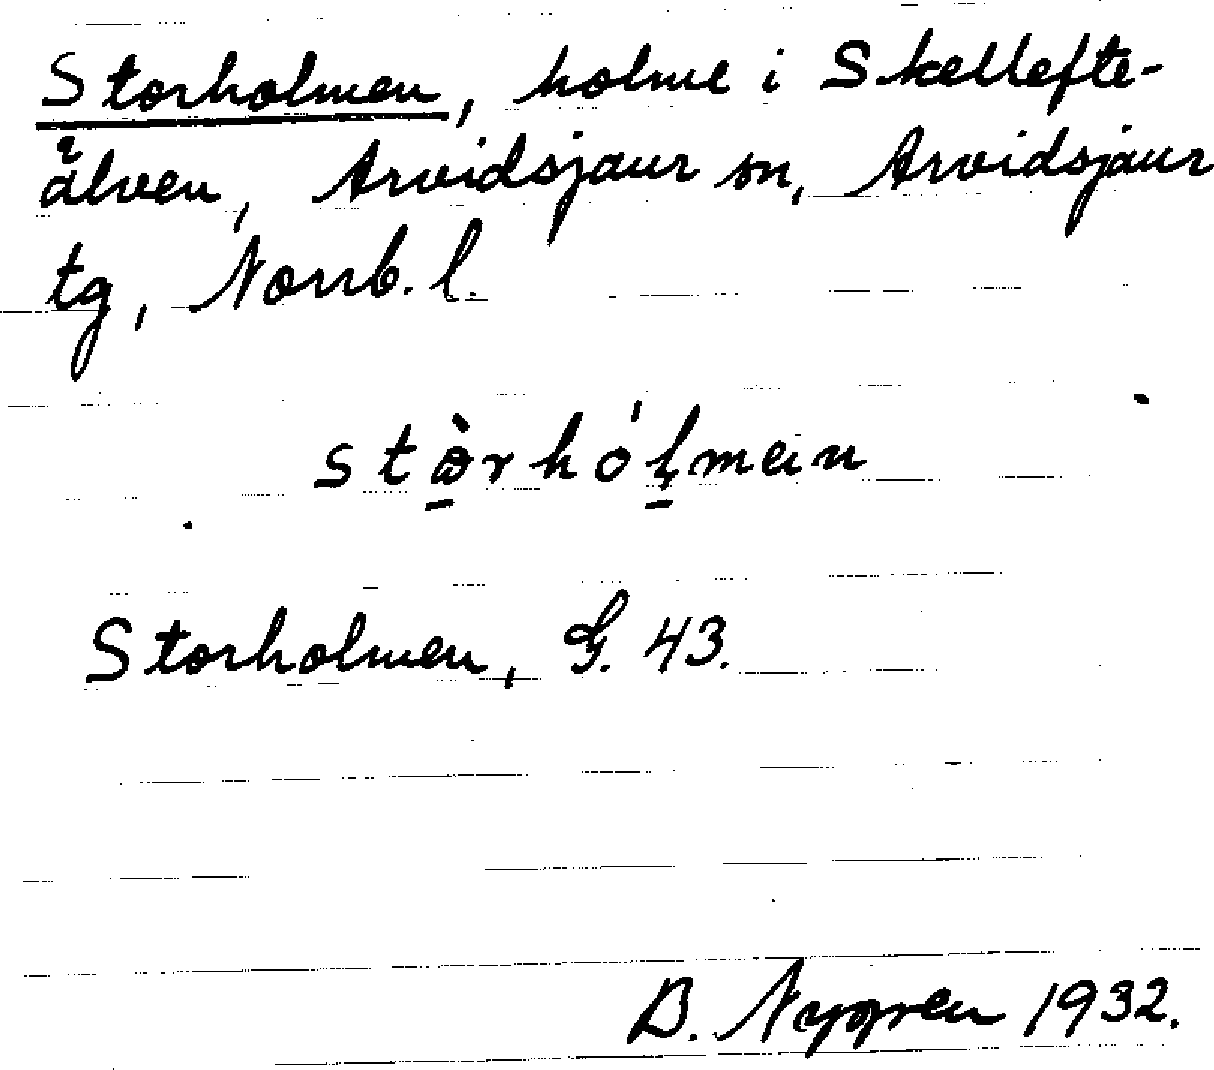 Storholmen, holme i Skellefte-
älven, Arvidsjaur sn, Arvidsjaur
tg, Norrb. l.
stò̱rhóḻmein
Storholmen, G. 43.
B. Nygren 1932.